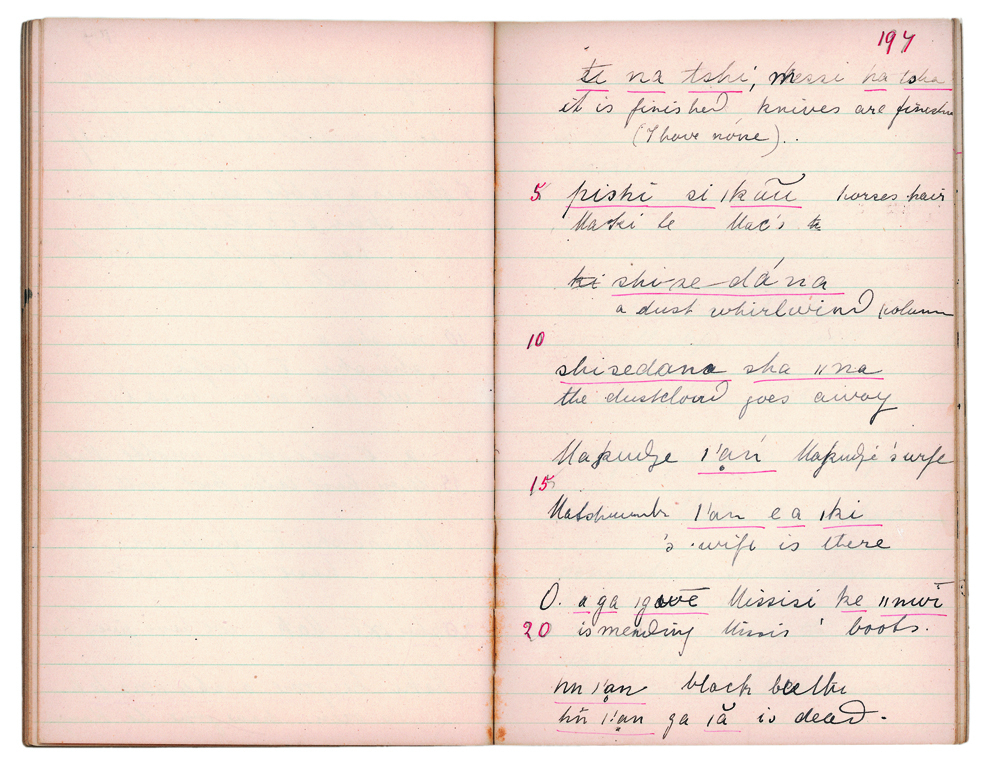 197
te na tshi, messi ha tsha
it is finished knives are
(I have none)..
5 pishi si ǀkāū horses hair
Maki le Mac's
shize dána
a dust whirlwind column
10
shizedana sha ǁna
the dustcloud goes away
Makudze ǀ'ạń Makudzi's wife
15
ǀ'an e a ǀki
's wife is there
O. a ga Missisi ke ǁnwī
20 is mending Missis' boots.
ǀ'ạn black beetle
ǀ'ạn ga ǀā is dead.